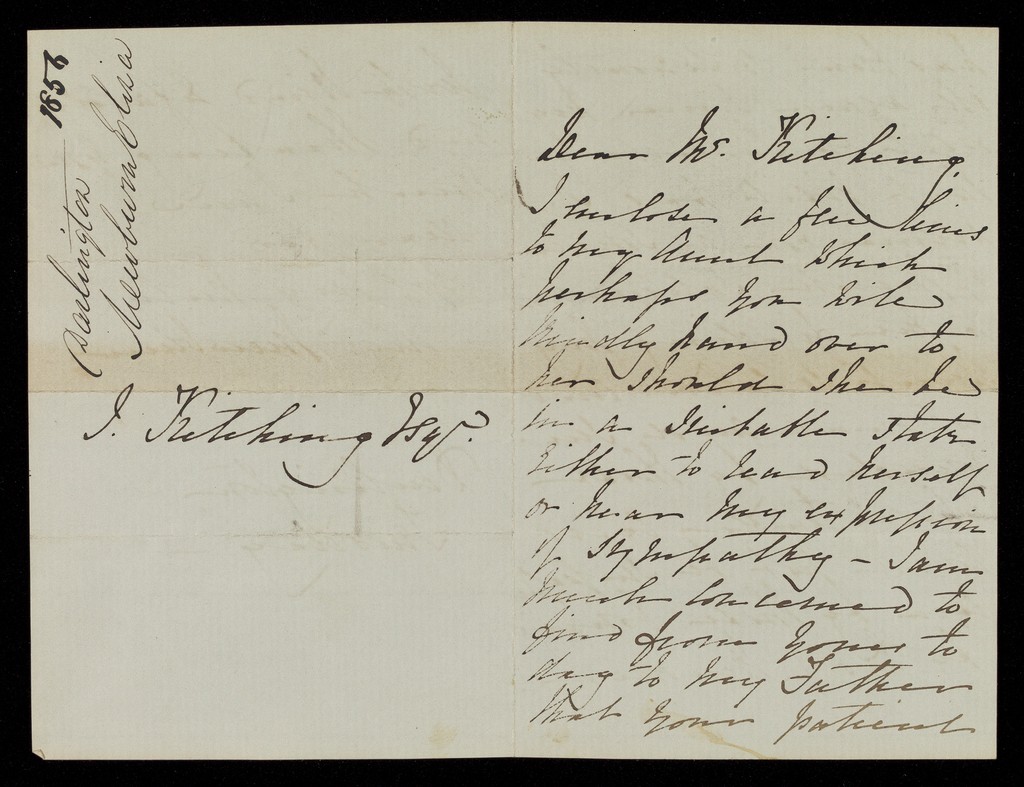 1856
Darlington
Newburn Eliza
J. Kitching Esqr.
Dear Mr. Kitching,
I enclose a few lines
to my Aunt which
perhaps you will
kindly hand over to
her should she be
in a suitable state
either to read herself
or hear my expression
of sympathy – I am
much concerned to
find from yours to
day to my Father
that your patient